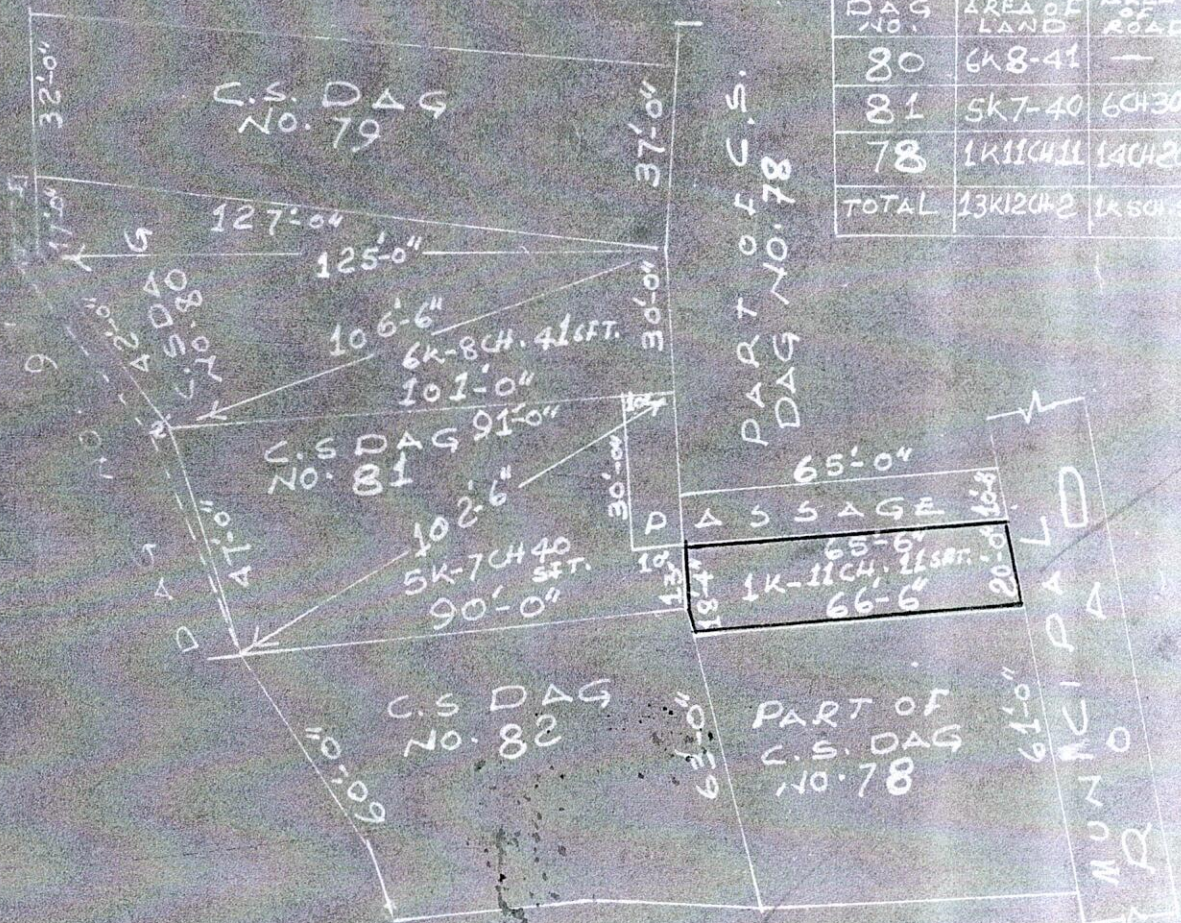 DAG NO. AREA OF LAND OF ROAD
80 6K 8-41 —
81 5K7-40 6CH30
78 1K11CH11 14CH2
TOTAL 13K12CH2 1K5CH
32'-0"
C.S. DAG
NO. 79
37'-0"
PART OF C.S.
DAG NO. 78
17'-0"
127'-0"
125'-0"
42'-0"
C.S DAG
NO. 80
106'-6"
6K-8CH. 41SFT.
30'-0"
101'-0"
C.S DAG 91'-0"
NO. 81
30'-0"
102'-6"
5K-7CH 40
SFT.
90'-0"
47'-0"
DAG NO. 9
65'-0"
PASSAGE
10'8
10'
13'
65'-6"
1K-11CH. 11SFT.
66'-6"
18'-4"
20'-0"
C.S DAG
NO. 82
60'-0"
63'-0"
PART OF
C.S. DAG
NO. 78
61'-0"
MUNICIPAL
ROAD